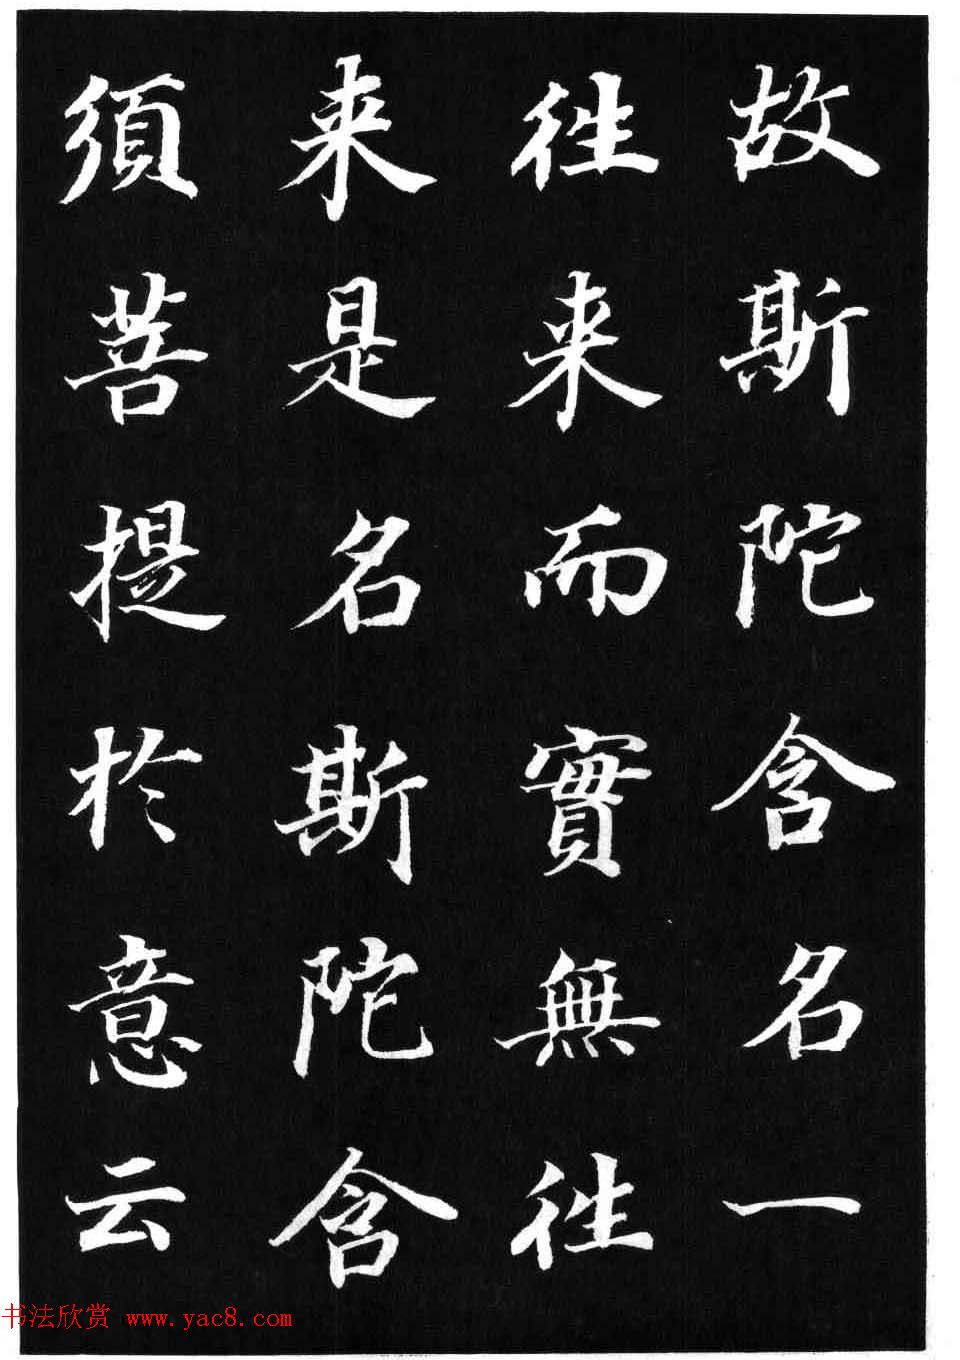 故斯陀含名一
往来而實無往
来是名斯陀含
須菩提於意云
书法欣赏 www.yac8.com